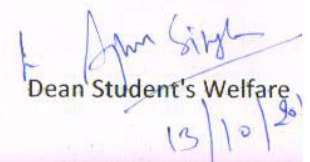 Singh
Dean Student's Welfare
13/10/20